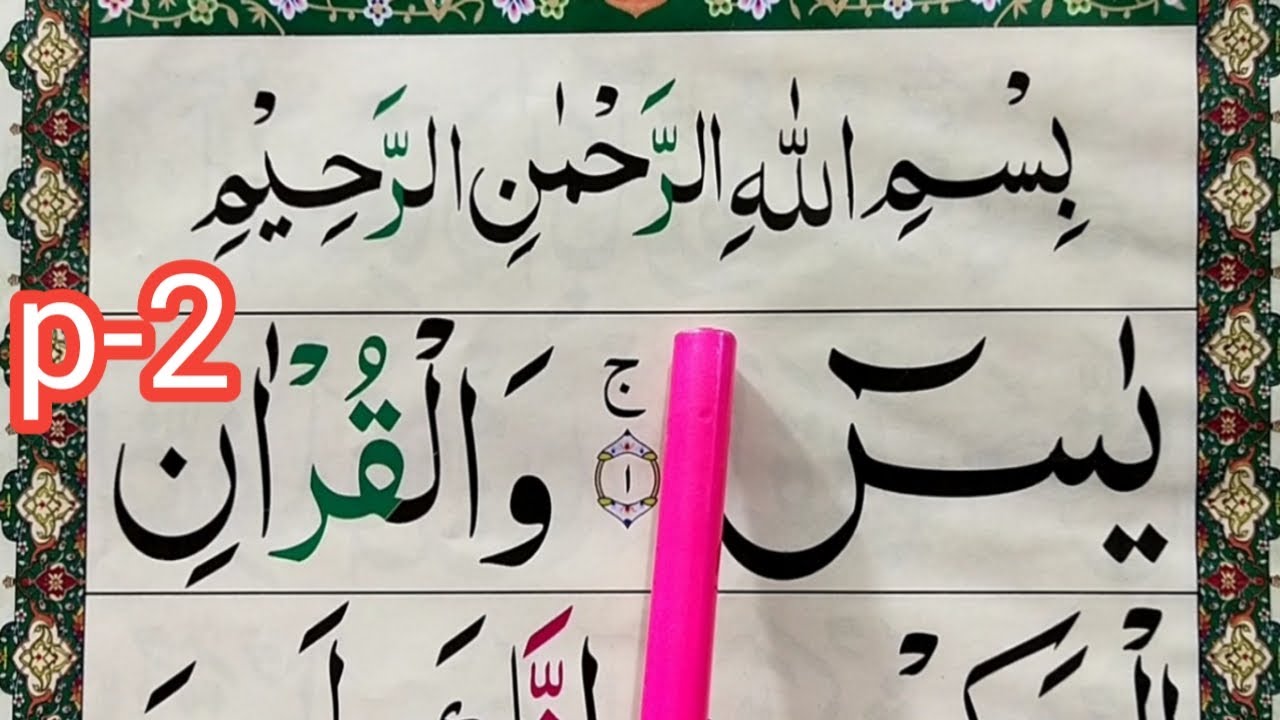 بِسْمِ اللّٰهِ الرَّحْمٰنِ الرَّحِيْمِ
p-2
يٰسٓ ۚ ١ وَالْقُرْاٰنِ